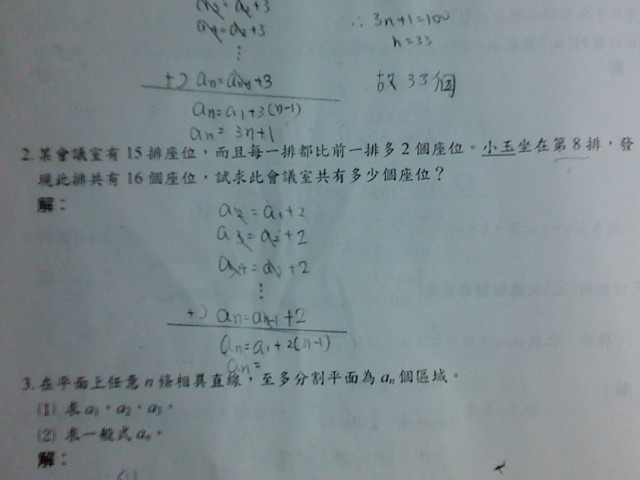 a₂=a₁+3
∴ 3n+1=100
a₄=a₃+3
n=33
⋮
+) aₙ=aₙ₋₁+3
故 33個
aₙ=a₁+3(n-1)
aₙ= 3n+1
2. 某會議室有 15 排座位,而且每一排都比前一排多 2 個座位。小玉坐在第 8 排,發
現此排共有 16 個座位,試求此會議室共有多少個座位?
解:
a₂=a₁+2
a₃=a₂+2
a₄=a₃+2
⋮
+) aₙ=aₙ₋₁+2
aₙ=a₁+2(n-1)
aₙ=
3. 在平面上任意 n 條相異直線,至多分割平面為 aₙ 個區域。
(1) 求 a₁,a₂,a₃。
(2) 求一般式 aₙ。
解:
(1)